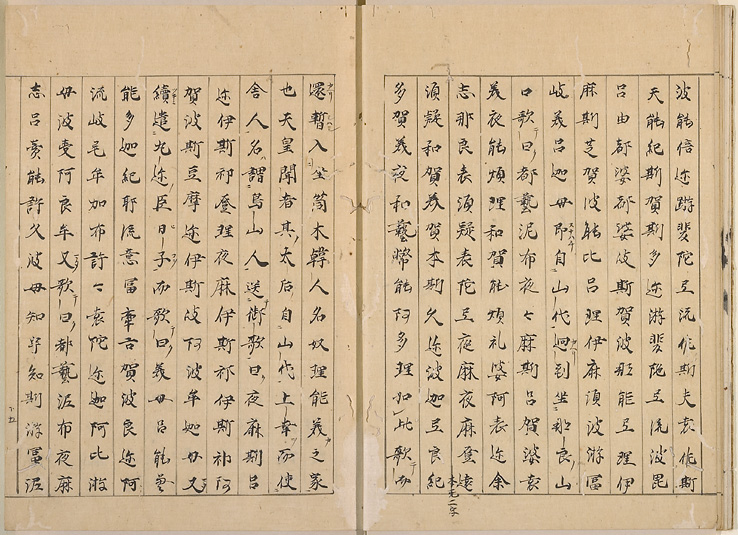 波能倍迩游斐陀弖流佐斯夫袁佐斯
夫能紀斯賀斯多迩游斐陀弖流波毘
呂由都婆都婆岐斯賀波那能弖理伊
麻斯芝賀波能比呂理伊麻須波游冨
岐美呂迦母即自山代廻到坐那良山
口歌曰都藝泥布夜々麻斯呂賀波袁
美夜能煩理和賀能煩礼婆阿袁迩余
志那良袁須疑袁陀弖夜麻夜麻登
須疑和賀美賀本斯久迩波迦豆良紀
多賀美夜和藝幣能阿多理如此歌而
還暫入坐筒木韓人名奴理能美之家
也天皇聞者其大后自山代上幸而使
舎人名謂鳥山人送御歌曰夜麻斯呂
迩伊斯祁登理夜麻伊斯祁伊斯祁阿
賀波斯豆摩迩伊斯岐阿波牟迦母又
續遣丸迩臣口子而歌曰美母呂能曽
能多迦紀那流意冨韋古賀波良迩阿
流岐毛牟加布許々袁陀迩迦阿比游
母波受阿良牟又歌曰都藝泥布夜麻
志呂賣能許久波母知宇知斯游冨泥